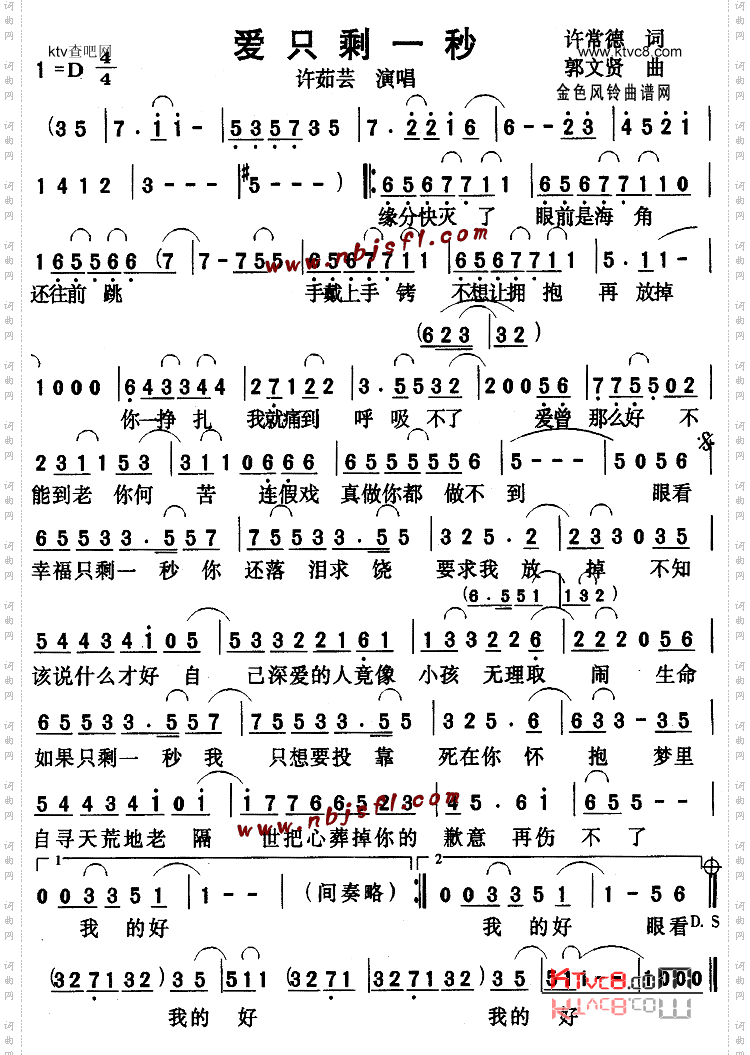 爱只剩一秒
ktv查吧网
许常德 词
www.ktvc8.com
1=D 4/4
许茹芸 演唱
郭文贤 曲
金色风铃曲谱网
(35 | 7.1 1- | 535735 | 7.2216 | 6--23 | 4521 |
1412 | 3--- | #5---) |: 65677711 | 656777110 |
缘分快灭 了 眼前是海 角
1655666 (7 | 7-755 | 65677711 | 65677711 | 5.11- |
还往前 跳 手戴上手 铐 不想让拥 抱 再 放掉
www.nbjsfl.com
(623 | 32)
1000 | 6433344 | 27122 | 3.5532 | 20056 | 7755502 |
你一挣 扎 我就痛到 呼 吸 不了 爱曾 那么好 不
231153 | 3110666 | 65555556 | 5--- | 5056 |
能到老 你何 苦 连假戏 真做你都 做不 到 眼看
65533.557 | 75533.55 | 325.2 | 233035 |
幸福只剩一 秒 你 还落 泪求 饶 要求我 放 掉 不知
(6.551 | 132)
54434105 | 533221161 | 1333226 | 2222056 |
该说什么才好 自 己深爱的人竟像 小孩 无理取 闹 生命
65533.557 | 75533.55 | 325.6 | 633-35 |
如果只剩一 秒 我 只想要投 靠 死在你 怀 抱 梦里
54434101 | 177666523 | 45.61 | 655-- |
自寻天荒地老 隔 世把心葬掉你的 歉意 再伤 不 了
www.nbjsfl.com
1 2
003351 | 1-- | (间奏略) :| 003351 | 1---
我 的好 我 的好 眼看 D.S
(327132) 35 | 511 (32 | 71 3271 32) 35 | 511-- | 1000 |
我的 好 我的 好
KTvc8.com
词曲网